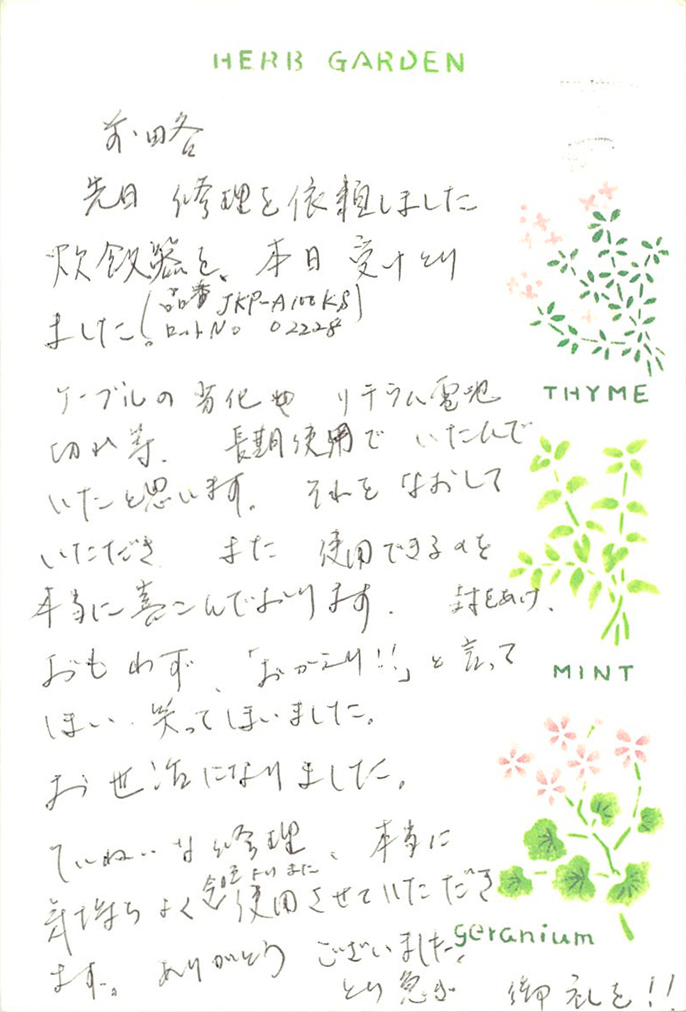 HERB GARDEN
前略
先日 修理を依頼しました
炊飯器を、本日 受けとり
ました。(品番 JKP-A100KS
ロットNo 02228)
ケーブルの劣化や リチウム電池
切れ等、長期使用で いたんで
いたと思います。それを なおして
いただき また 使用できるのを
本当に喜こんでおります。封をあけ、
おもわず、「おかえり!!」と言って
しまい、笑ってしまいました。
お世話になりました。
ていねいな修理、本当に
気持ちよく 今日よりまた 使用させていただき
ます。ありがとう ございました。
とり急ぎ 御礼を!!
THYME
MINT
geranium